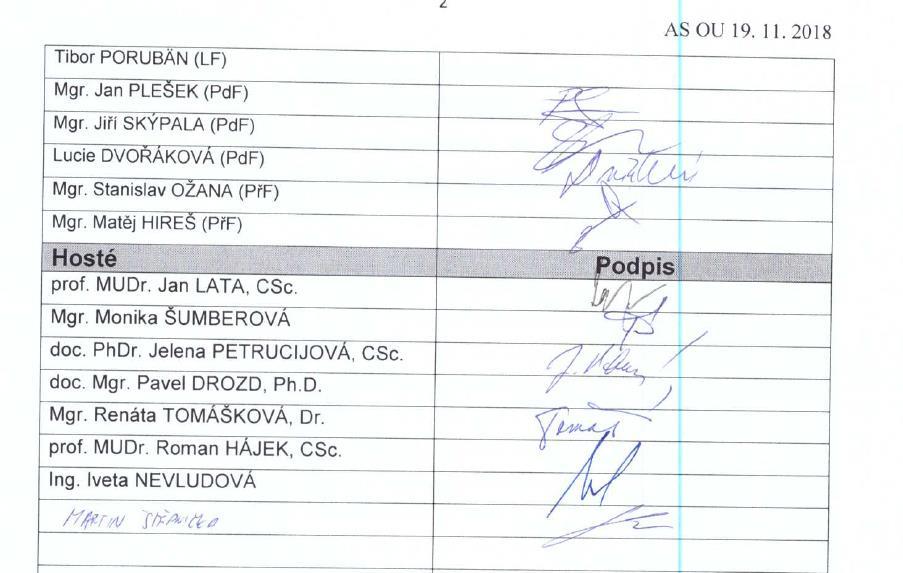 2
AS OU 19. 11. 2018
Tibor PORUBÄN (LF)
Mgr. Jan PLEŠEK (PdF)
Mgr. Jiří SKÝPALA (PdF)
Lucie DVOŘÁKOVÁ (PdF)
Mgr. Stanislav OŽANA (PřF)
Mgr. Matěj HIREŠ (PřF)
Hosté Podpis
prof. MUDr. Jan LATA, CSc.
Mgr. Monika ŠUMBEROVÁ
doc. PhDr. Jelena PETRUCIJOVÁ, CSc.
doc. Mgr. Pavel DROZD, Ph.D.
Mgr. Renáta TOMÁŠKOVÁ, Dr.
prof. MUDr. Roman HÁJEK, CSc.
Ing. Iveta NEVLUDOVÁ
MARTIN ŠTĚPNIČKA